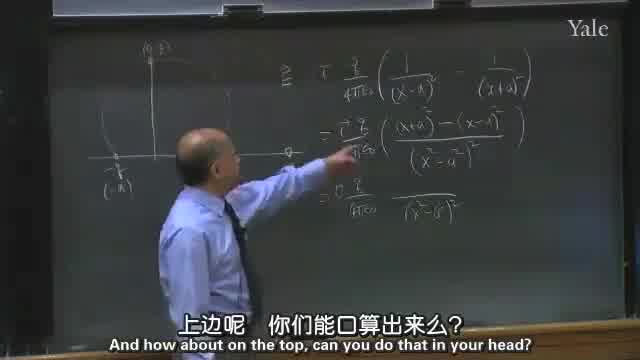 Yale
(0, y)
≅ i q/4πε₀ ( 1/(x-a)² - 1/(x+a)² )
= i q/4πε₀ ( (x+a)² - (x-a)² / (x²-a²)² )
-q
(-a)
= i q/4πε₀ (x²-a²)²
上边呢 你们能口算出来么?
And how about on the top, can you do that in your head?